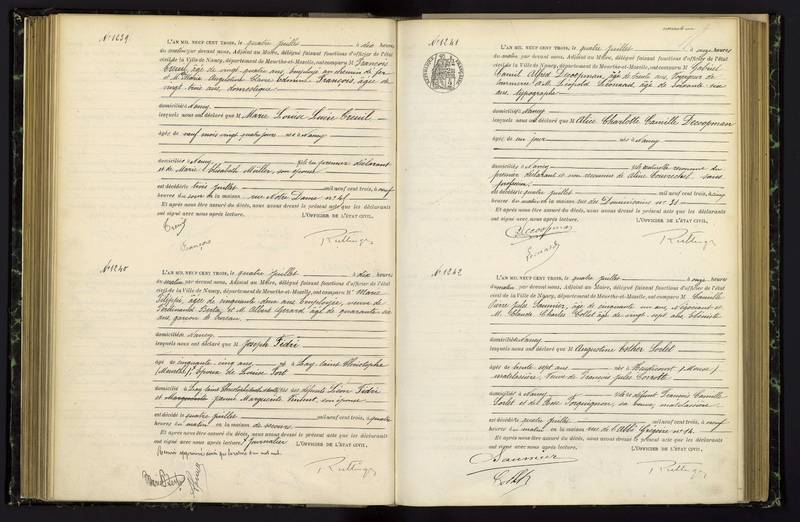 N° 1239.
L'AN MIL NEUF CENT TROIS, le quatre juillet à dix heures
du matin par devant nous, Adjoint au Maire, délégué faisant fonctions d'officier de l'état
civil de la Ville de Nancy, département de Meurthe-et-Moselle, ont comparu M François
Creuil, âgé de vingt quatre ans, employé au chemin de fer
et M
François, âgé de
vingt trois ans, domestique
domiciliés à Nancy
lesquels nous ont déclaré que M Marie Louise Lucie Creuil
âgée de neuf mois vingt quatre jours née à Nancy
domiciliée à Nancy fille du premier déclarant
et de Marie Elisabeth Müller, son épouse
est décédée le trois juillet mil neuf cent trois, à neuf
heures du soir en la maison rue Notre Dame n° 45
Et après nous être assuré du décès, nous avons dressé le présent acte que les déclarants
ont signé avec nous après lecture. L'OFFICIER DE L'ÉTAT CIVIL,
Creuil
François
N° 1240
L'AN MIL NEUF CENT TROIS, le quatre juillet à dix heures
du matin par devant nous, Adjoint au Maire, délégué faisant fonctions d'officier de l'état
civil de la Ville de Nancy, département de Meurthe-et-Moselle, ont comparu M Marie
âgée de cinquante deux ans, employée, veuve de
Ferdinand et M Albert Gérard âgé de quarante six
ans garçon de bureau
domiciliés à Nancy
lesquels nous ont déclaré que M Joseph Fédri
âgé de cinquante cinq ans né à Lay Saint Christophe
(Meurthe) époux de Louise
domicilié à Lay Saint Christophe fils des défunts Léon Fédri
et Marguerite Vincent, son épouse
est décédé le quatre juillet mil neuf cent trois, à quatre
heures du matin en la maison de secours
Et après nous être assuré du décès, nous avons dressé le présent acte que les déclarants
ont signé avec nous après lecture. journalier L'OFFICIER DE L'ÉTAT CIVIL,
N° 1241
L'AN MIL NEUF CENT TROIS, le quatre juillet à onze heures
du matin par devant nous, Adjoint au Maire, délégué faisant fonctions d'officier de l'état
civil de la Ville de Nancy, département de Meurthe-et-Moselle, ont comparu M Gabriel
Camil Alfred Decoopman, âgé de trente ans, Voyageur de
commerce et M Léopold Léonard, âgé de soixante six
ans, typographe
domiciliés à Nancy
lesquels nous ont déclaré que M Alice Charlotte Camille Decoopman
âgée de un jour née à Nancy
domiciliée à Nancy fille naturelle reconnue du
premier déclarant et non reconnue de Aline sans
profession
est décédée le quatre juillet mil neuf cent trois, à cinq
heures du matin en la maison rue des Dominicains n° 31
Et après nous être assuré du décès, nous avons dressé le présent acte que les déclarants
ont signé avec nous après lecture. L'OFFICIER DE L'ÉTAT CIVIL,
Decoopman
Léonard
N° 1242
L'AN MIL NEUF CENT TROIS, le quatre juillet à onze heures
du matin par devant nous, Adjoint au Maire, délégué faisant fonctions d'officier de l'état
civil de la Ville de Nancy, département de Meurthe-et-Moselle, ont comparu M Camille
Pierre Jules Saunier, âgé de cinquante un ans, Négociant et
M. Claude Charles Collet âgé de vingt sept ans, ébéniste
domiciliés à Nancy
lesquels nous ont déclaré que M Augustine Esther Sorlet
âgée de trente sept ans née à (Meuse)
matelassière, Veuve de François Jules
domiciliée à Nancy fille de défunt François Camille
Sorlet et de Rose sa veuve, matelassière
est décédée le quatre juillet mil neuf cent trois, à neuf
heures du matin en la maison rue de l'Abbé Grégoire n° 14
Et après nous être assuré du décès, nous avons dressé le présent acte que les déclarants
ont signé avec nous après lecture. L'OFFICIER DE L'ÉTAT CIVIL,
Saunier